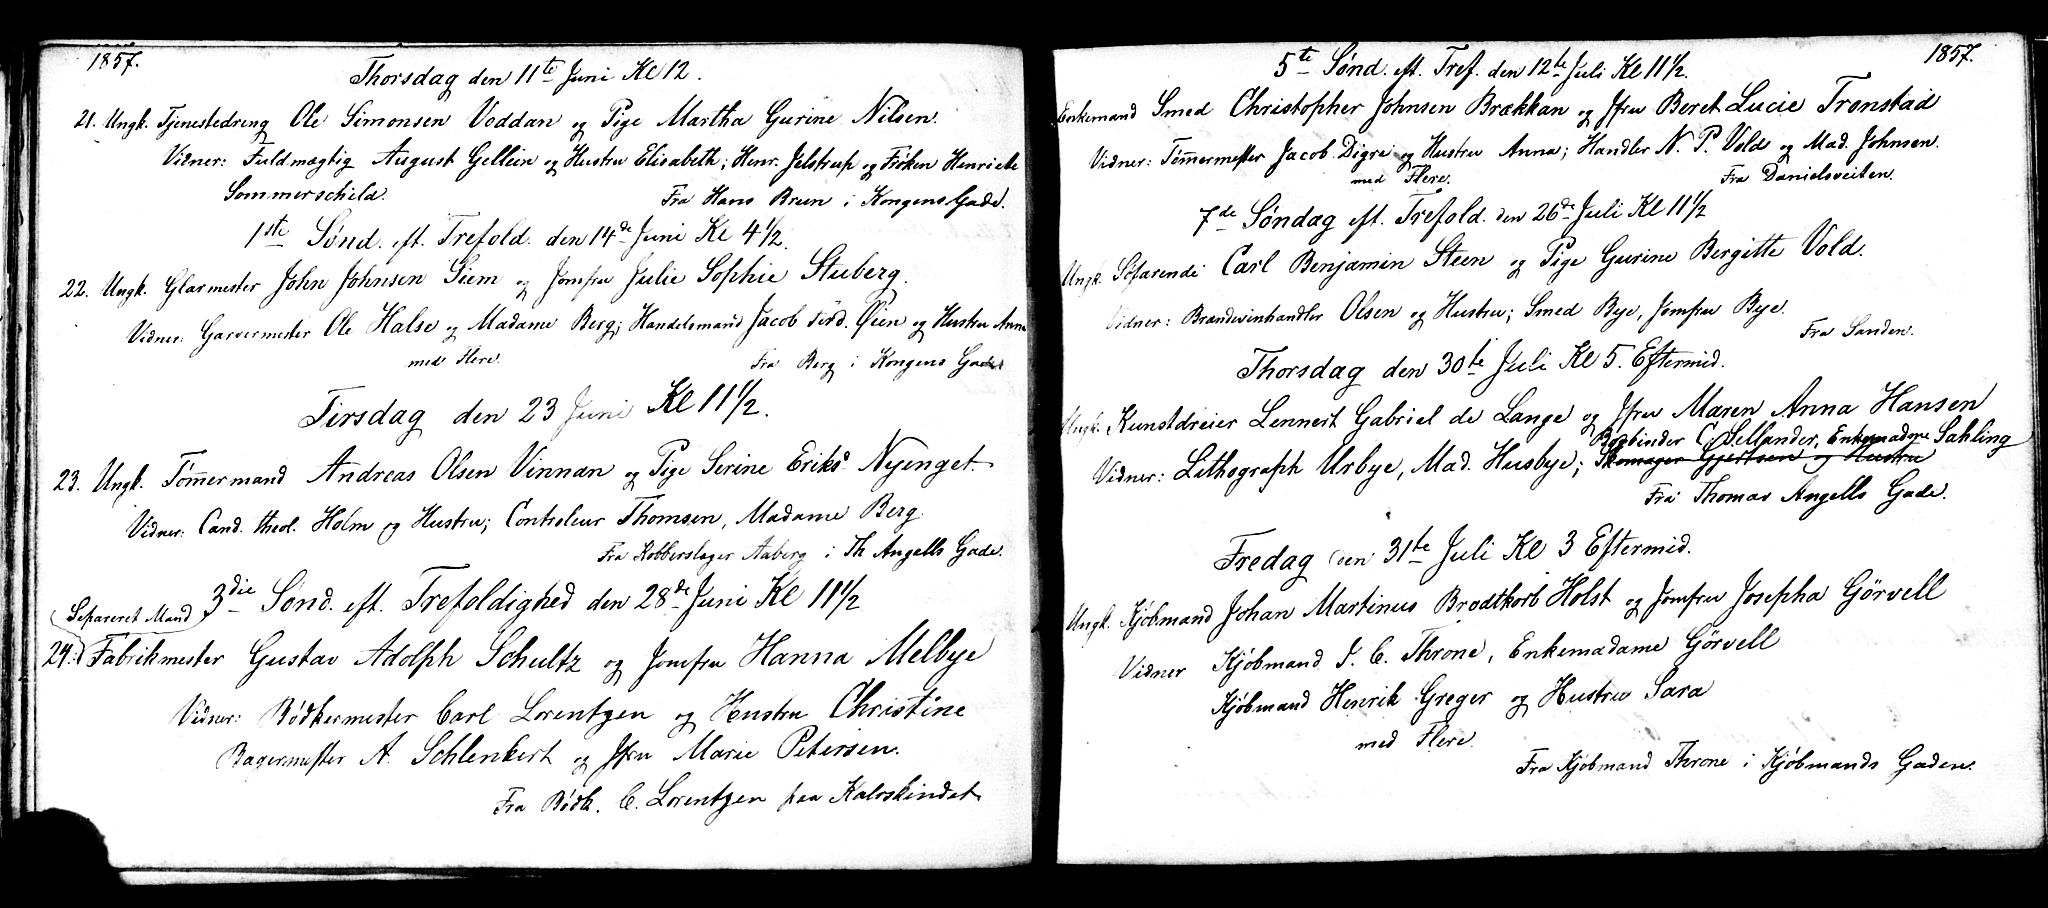 1857.
Thorsdag den 11te Juni Kl 12.
21. Ungk. Tjenestedreng Ole Simonsen Voddan og Pige Martha Gurine Nilsen.
Vidner: Fuldmægtig August Gellein og Hustru Elisabeth; Henr. Jelstrup og Frøken Henriette
Sommerschild.
Fra Hans Brun i Kongens Gade.
1ste Sønd. eft. Trefold. den 14de Juni Kl 4 1/2.
22. Ungk. Glarmester John Johnsen Siem og Jomfru Julie Sophie Stuberg.
Vidner: Garvermester Ole Halse og Madame Berg; Handelsmand Jacob Ferd. Øien og Hustru Anna
med Flere.
Fra Berg i Kongens Gade
Tirsdag den 23 Juni Kl 11 1/2.
23. Ungk. Tømmermand Andreas Olsen Vinnan og Pige Serine Eriksd. Nyenget.
Vidner: Cand. theol. Holm og Hustru; Controleur Thomsen, Madame Berg.
Fra Kobberslager Aaberg i Th Angells Gade.
3die Sønd. eft. Trefoldighed den 28de Juni Kl 11 1/2
Separeret Mand
24. Fabrikmester Gustav Adolph Schultz og Jomfru Hanna Melbye
Vidner: Bødkermester Carl Lorentzen og Hustru Christine
Bagermester A. Schlenkert og Jfru Marie Petersen.
Fra Bødk. C. Lorentzen paa Kalvskindet.
1857.
5te Sønd. eft. Tref. den 12te Juli Kl 11 1/2.
Enkemand Smed Christopher Johnsen Brækkan og Jfru Beret Lucie Trønstad
Vidner: Tømmermester Jacob Digre og Hustru Anna; Handler N. P. Vold og Mad. Johnsen.
med Flere.
Fra Danielsveiten.
7de Søndag eft. Trefold. den 26de Juli Kl 11 1/2
Ungk. Søfarende Carl Benjamin Steen og Pige Gurine Bergitte Vold.
Vidner: Brændevinhandler Olsen og Hustru; Smed Bye, Jomfru Bye.
Fra Sanden.
Thorsdag den 30te Juli Kl 5. Eftermid.
Ungk. Kunstdreier Lennert Gabriel de Lange og Jfru Maren Anna Hansen
Bogbinder C. Sellander, Enkemadame Sahling
Vidner: Lithograph Urbye, Mad. Husbye; Skomager Gjertsen og Hustru
Fra Thomas Angells Gade.
Fredag den 31te Juli Kl 3 Eftermid.
Ungk. Kjøbmand Johan Martinus Brodtkorb Holst og Jomfru Josepha Görvell
Vidner Kjøbmand J. C. Throne, Enkemadame Görvell
Kjøbmand Henrik Greger og Hustru Sara
med Flere.
Fra Kjøbmand Throne i Kjøbmands Gaden.